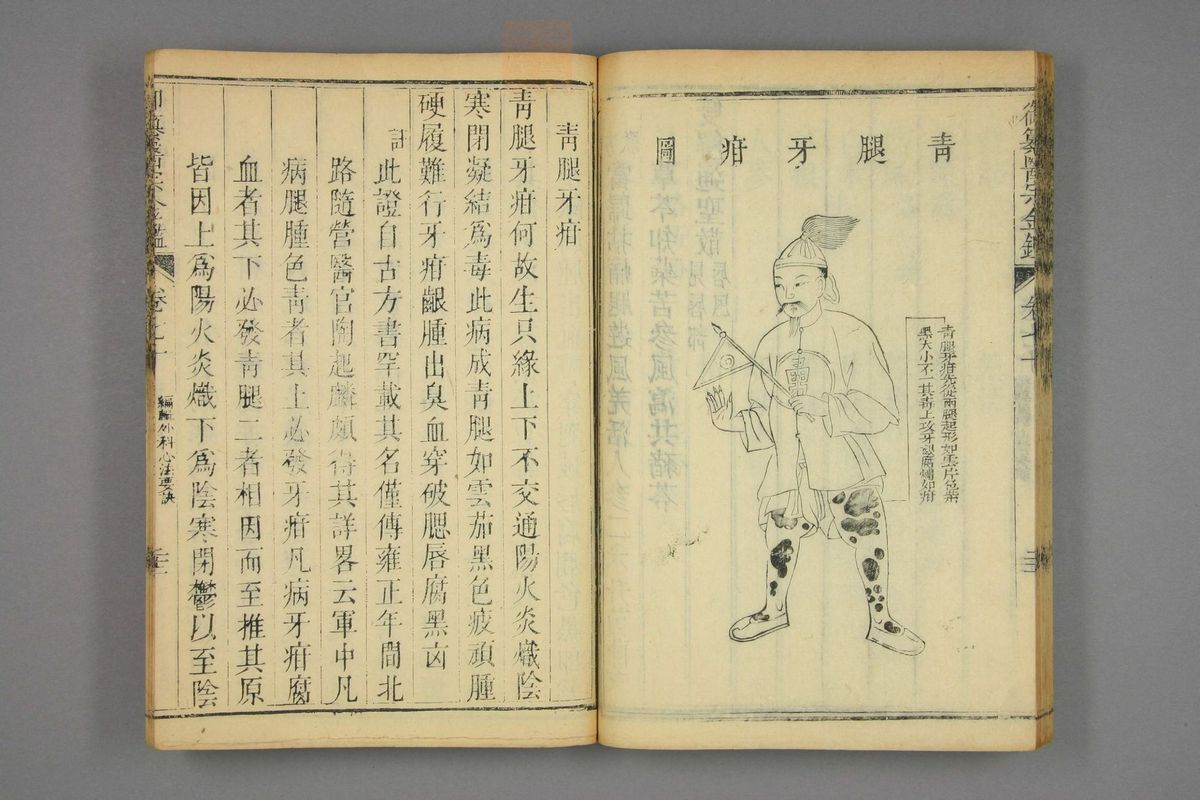 青腿牙疳圖
青腿牙疳先從兩腿起形如雲片色黑
大小不一其毒上攻牙齦腐爛如疳
御纂醫宗金鑑
卷七十
青腿牙疳
青腿牙疳何故生只緣上下不交通陽火炎熾陰
寒閉凝結爲毒此病成青腿如雲茄黑色疲頑腫
硬履難行牙疳齦腫出臭血穿破腮唇腐黑凶
註此證自古方書罕載其名僅傳雍正年間北
路隨營醫官陶起麟頗得其詳畧云軍中凡
病腿腫色青者其上必發牙疳凡病牙疳腐
血者其下必發青腿二者相因而至推其原
皆因上爲陽火炎熾下爲陰寒閉鬱以至陰
御纂醫宗金鑑
卷七十
編輯外科心法要訣